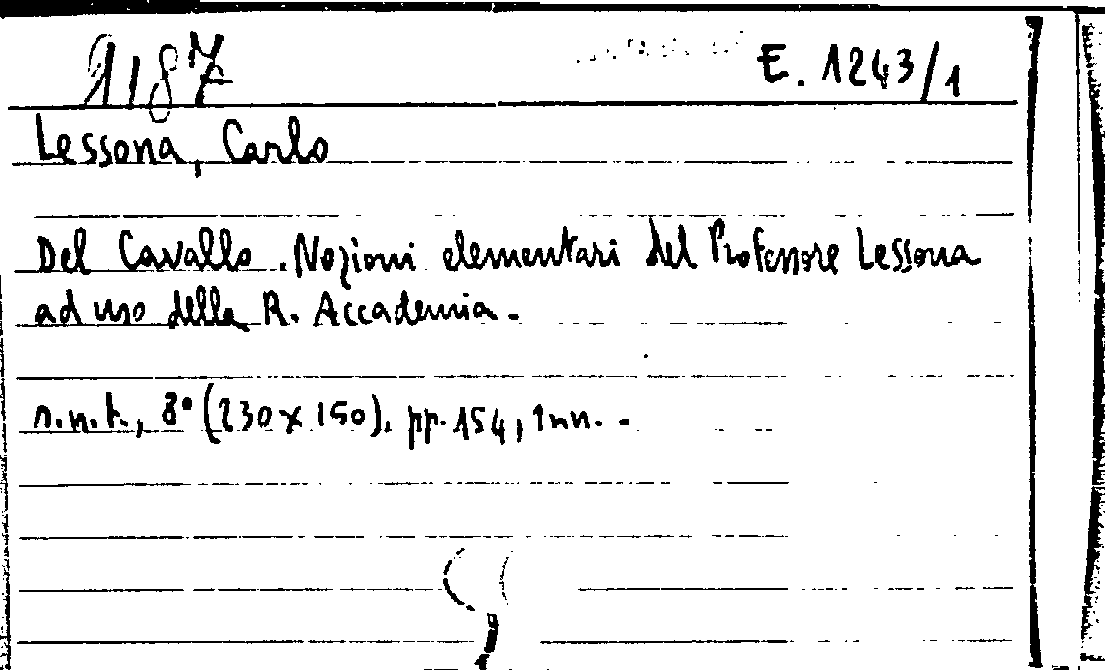 9187
E. 1243/1
Lessona, Carlo
Del Cavallo. Nozioni elementari del Professore Lessona
ad uso della R. Accademia.
s.n.t., 8° (230x150), pp. 154, 2nn. -